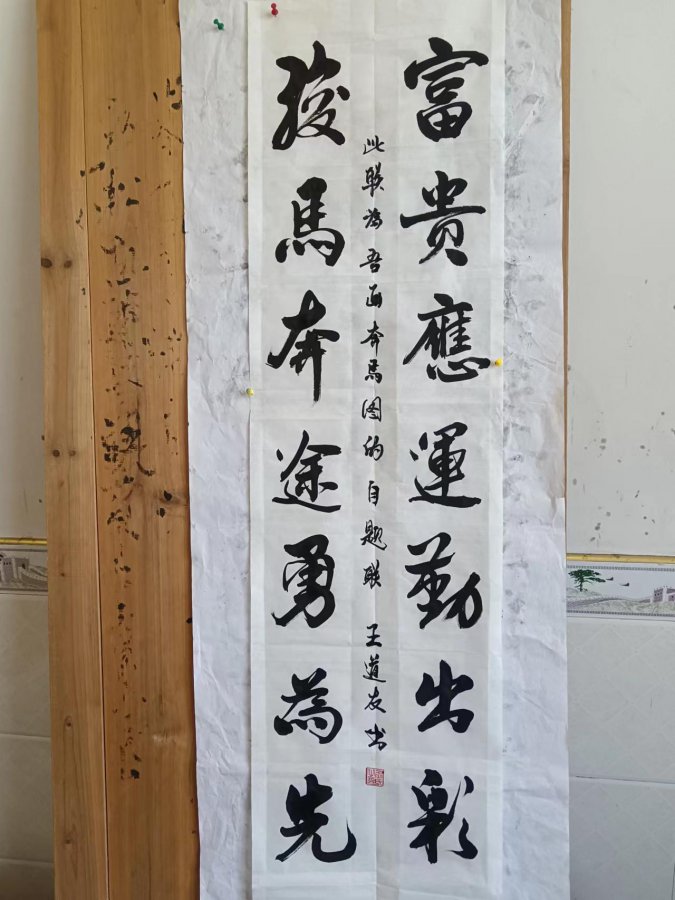 富貴應運勤出彩
此联为吾画奔马图的自题联 王道友书
駿馬奔途勇為先